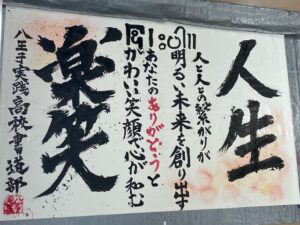 人生
人と人との繋がりが
明るい未来を創り出す
あなたのありがとうと
かわいい笑顔で心が和む
楽笑
八王子実践高校書道部